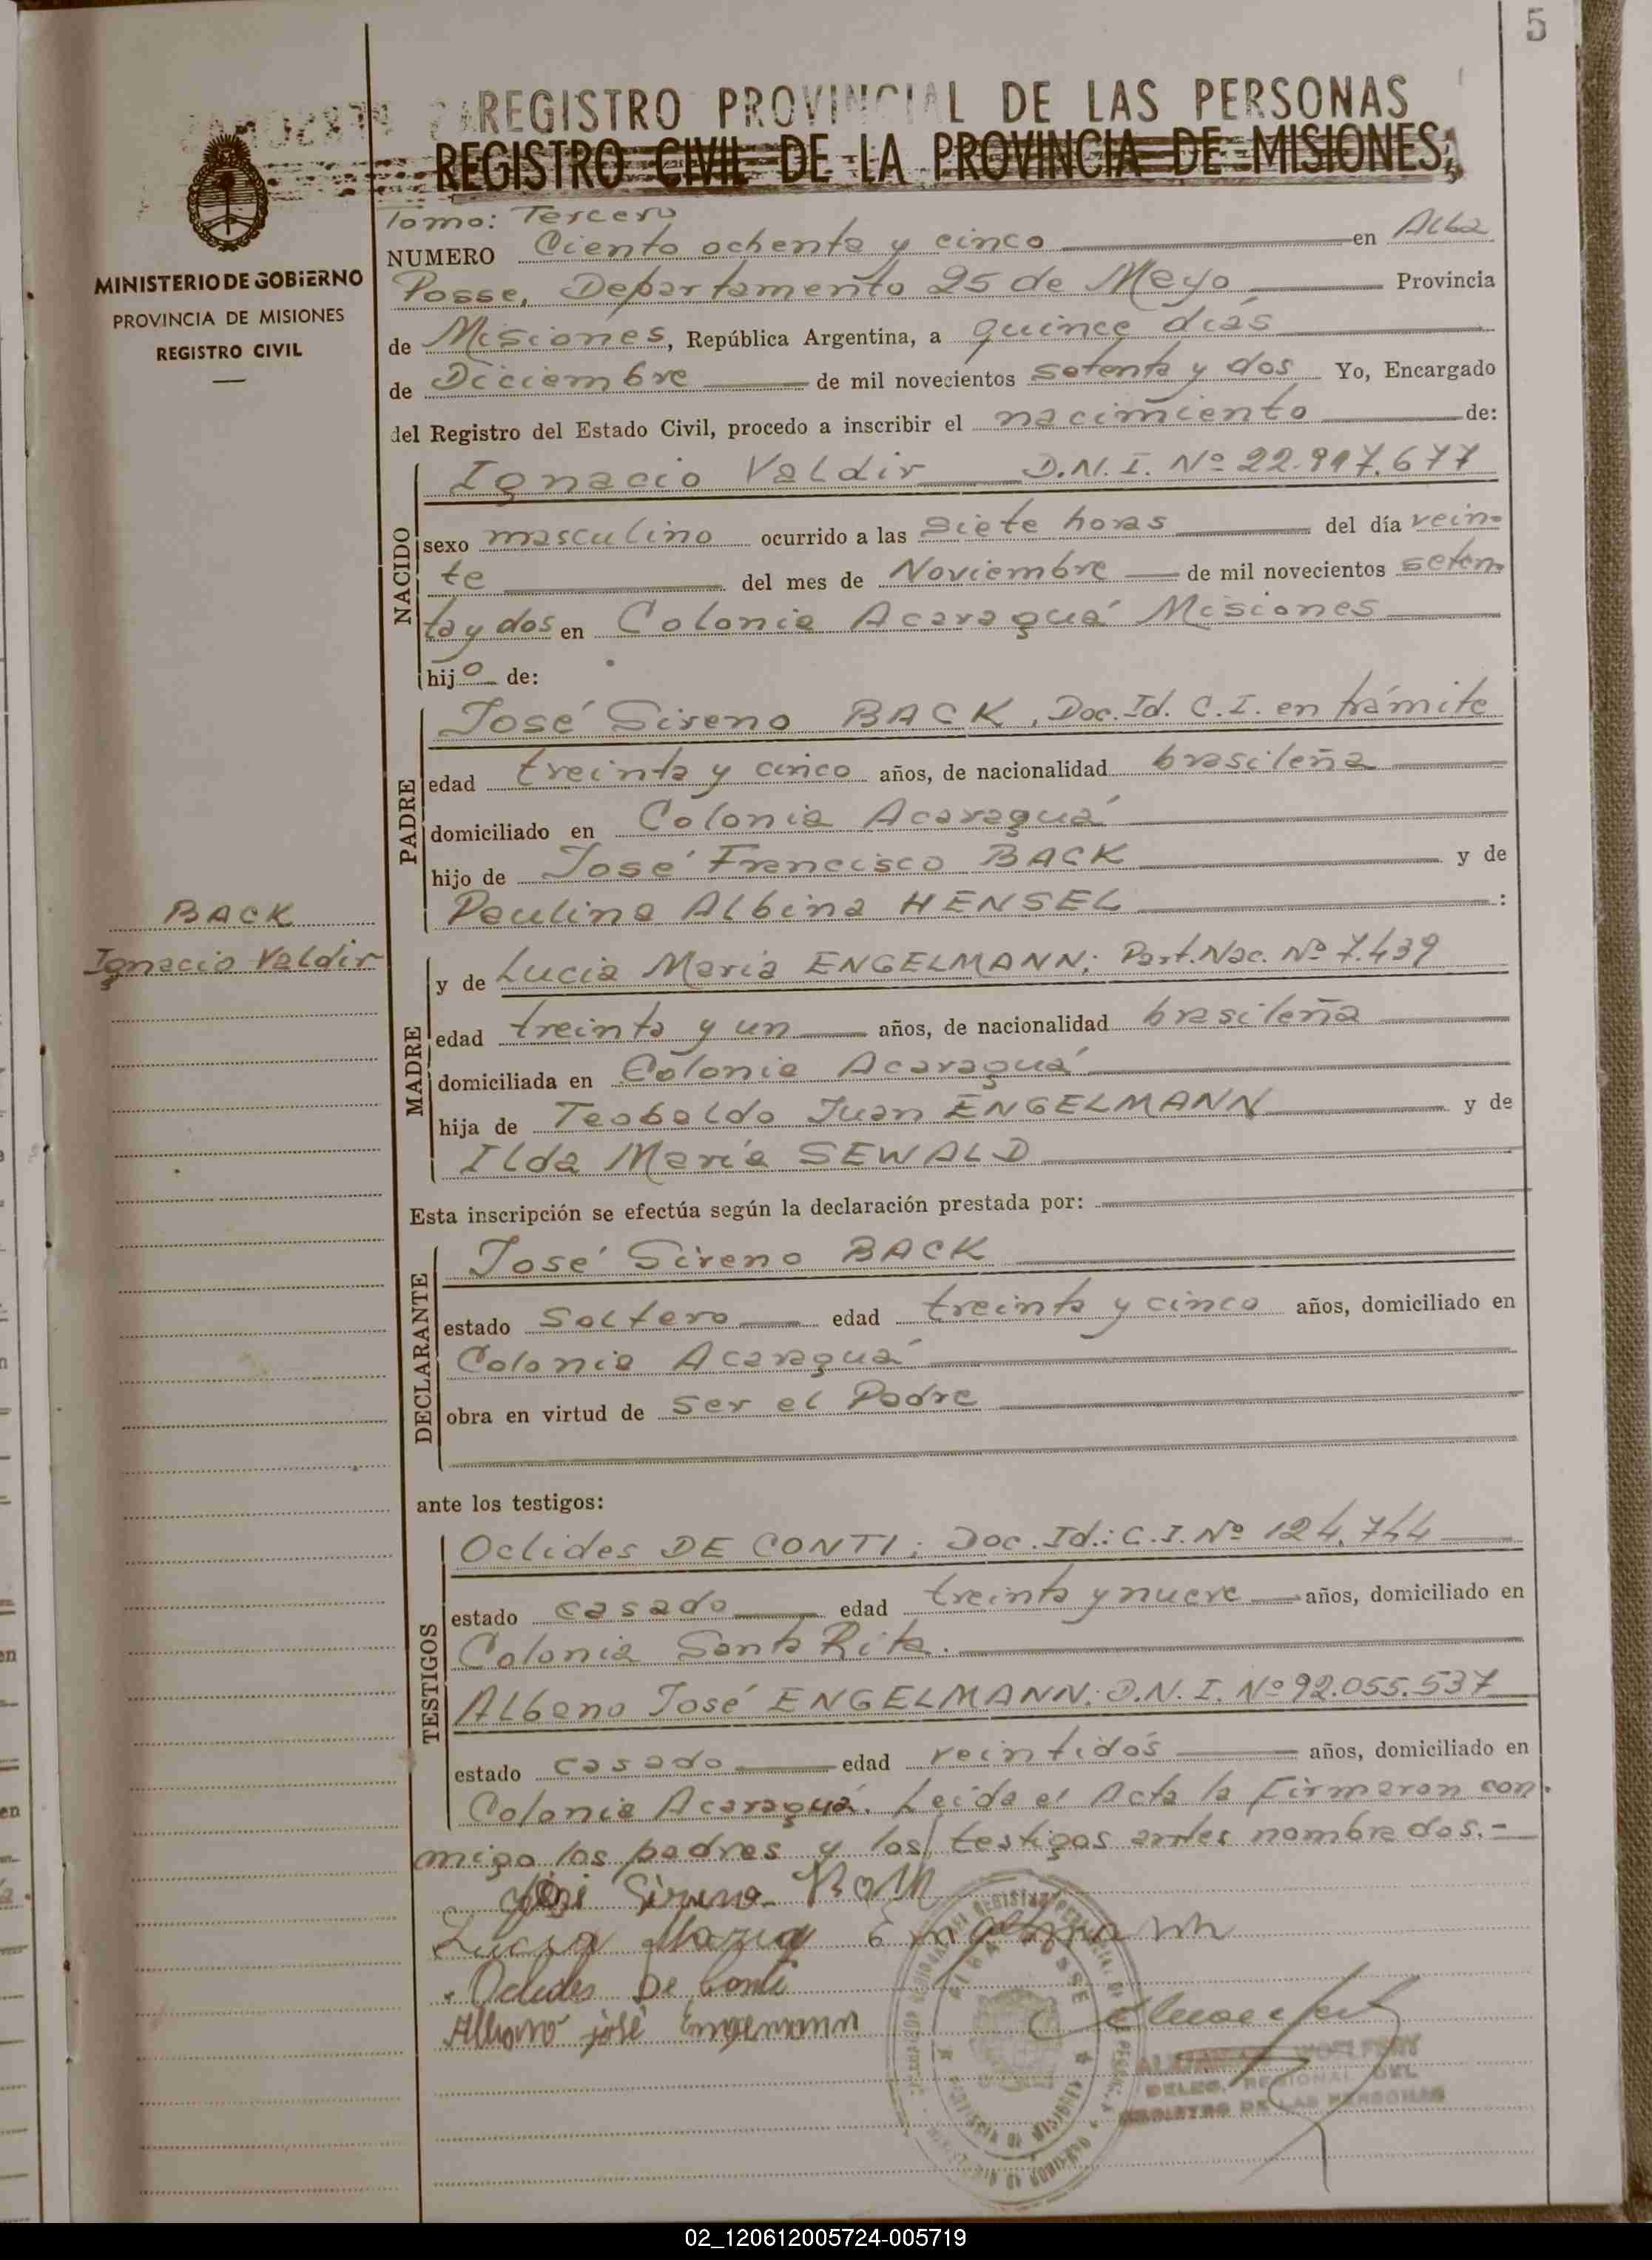 5
REGISTRO PROVINCIAL DE LAS PERSONAS
REGISTRO CIVIL DE LA PROVINCIA DE MISIONES
MINISTERIO DE GOBIERNO
PROVINCIA DE MISIONES
REGISTRO CIVIL
Tomo: Tercero
NUMERO Ciento ochenta y cinco en Alba
Posse, Departamento 25 de Mayo Provincia
de Misiones, República Argentina, a quince días
de Diciembre de mil novecientos setenta y dos Yo, Encargado
del Registro del Estado Civil, procedo a inscribir el nacimiento de:
NACIDO
Ignacio Valdir D.N.I. Nº 22.917.677
sexo masculino ocurrido a las siete horas del día vein-
te del mes de Noviembre de mil novecientos seten
ta y dos en Colonia Acaraguá Misiones
hijo de:
PADRE
José Sireno BACK, Doc. Id. C.I. en trámite
edad treinta y cinco años, de nacionalidad brasileña
domiciliado en Colonia Acaraguá
hijo de José Francisco BACK y de
Paulina Albina HENSEL :
BACK
Ignacio Valdir
MADRE
y de Lucia María ENGELMANN; Part. Nac. Nº 7.439
edad treinta y un años, de nacionalidad brasileña
domiciliada en Colonia Acaraguá
hija de Teobaldo Juan ENGELMANN y de
Ilda María SEWALD
Esta inscripción se efectúa según la declaración prestada por:
DECLARANTE
José Sireno BACK
estado soltero edad treinta y cinco años, domiciliado en
Colonia Acaraguá
obra en virtud de ser el Padre
ante los testigos:
TESTIGOS
Oclides DE CONTI; Doc. Id.: C.I. Nº 124.744
estado casado edad treinta y nueve años, domiciliado en
Colonia Santa Rita.
Albano José ENGELMANN. D.N.I. Nº 92.055.537
estado casado edad veintidós años, domiciliado en
Colonia Acaraguá. Leída el Acta la firmaron con-
migo los padres y los testigos antes nombrados.-
José Sireno Back
Lucia Maria Engelmann
Oclides De Conti
Albano josé Engemann
ALBA POSSE
DELEG. REGIONAL DEL
REGISTRO DE LAS PERSONAS
02_120612005724-005719